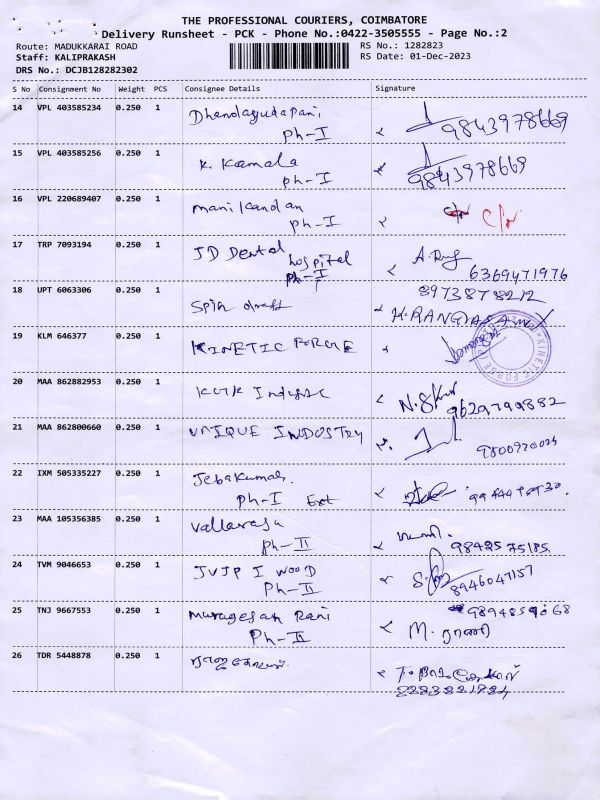 THE PROFESSIONAL COURIERS, COIMBATORE
Delivery Runsheet - PCK - Phone No.:0422-3505555 - Page No.:2
Route: MADUKKARAI ROAD RS No.: 1282823
Staff: KALIPRAKASH RS Date: 01-Dec-2023
DRS No.: DCJB128282302
S No Consignment No Weight PCS Consignee Details Signature
14 VPL 403585234 0.250 1 Dhandayudapani
Ph-I 9843978669
15 VPL 403585256 0.250 1 K. Kamala
Ph-I 9843978669
16 VPL 220689407 0.250 1 manikandan
Ph-I
17 TRP 7093194 0.250 1 JD Dental hospital
Ph-I 6369471976
18 UPT 6063306 0.250 1 Spin 8973878212
19 KLM 646377 0.250 1 KINETIC FORGE
20 MAA 862882953 0.250 1
21 MAA 862800660 0.250 1 UNIQUE INDOSTRY
22 IXM 505335227 0.250 1 Jebakumar.
Ph-I Ext
23 MAA 105356385 0.250 1 Vallarasu
Ph-II 98425 75185.
24 TVM 9046653 0.250 1 JVJP I WOOD
Ph-II 8946047157
25 TNJ 9667553 0.250 1 Murugesan Rani
Ph-II M. ராணி
26 TDR 5448878 0.250 1